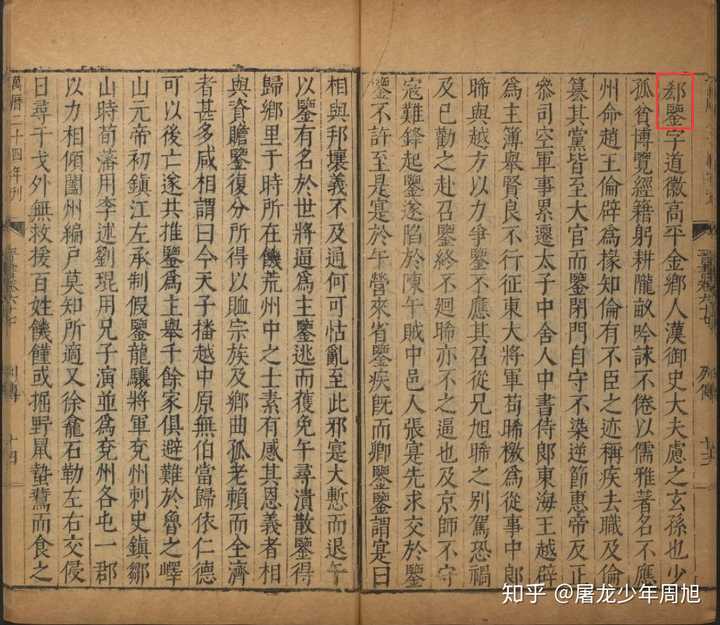 郗鑒字道徽高平金鄉人漢御史大夫慮之玄孫也少
孤貧博覽經籍躬耕隴畝吟詠不倦以儒雅著名不應
州命趙王倫辟爲掾知倫有不臣之迹稱疾去職及倫
簒其黨皆至大官而鑒閉門自守不染逆節惠帝反正
參司空軍事累遷太子中舍人中書侍郎東海王越辟
爲主簿舉賢良不行征東大將軍苟晞檄爲從事中郎
晞與越方以力爭鑒不應其召從兄旭晞之別駕恐禍
及已勸之赴召鑒終不廻晞亦不之逼也及京師不守
寇難鋒起鑒遂陷於陳午賊中邑人張寔先求交於鑒
鑒不許至是寔於午營來省鑒疾旣而卿鑒鑒謂寔曰
相與邦壤義不及通何可怙亂至此邪寔大慙而退午
以鑒有名於世將逼爲主鑒逃而獲免午尋潰散鑒得
歸鄉里于時所在饑荒州中之士素有感其恩義者相
與資贍鑒復分所得以賉宗族及鄉曲孤老賴而全濟
者甚多咸相謂曰今天子播越中原無伯當歸依仁德
可以後亡遂共推鑒爲主舉千餘家俱避難於魯之嶧
山元帝初鎮江左承制假鑒龍驤將軍兖州刺史鎮鄒
山時荀藩用李述劉琨用兄子演並爲兖州各屯一郡
以力相傾闔州編戶莫知所適又徐龕石勒左右交侵
日尋干戈外無救援百姓饑饉或掘野鼠蟄鷰而食之
萬曆二十四年刊
列傳
十四
列傳
知乎 @屠龙少年周旭